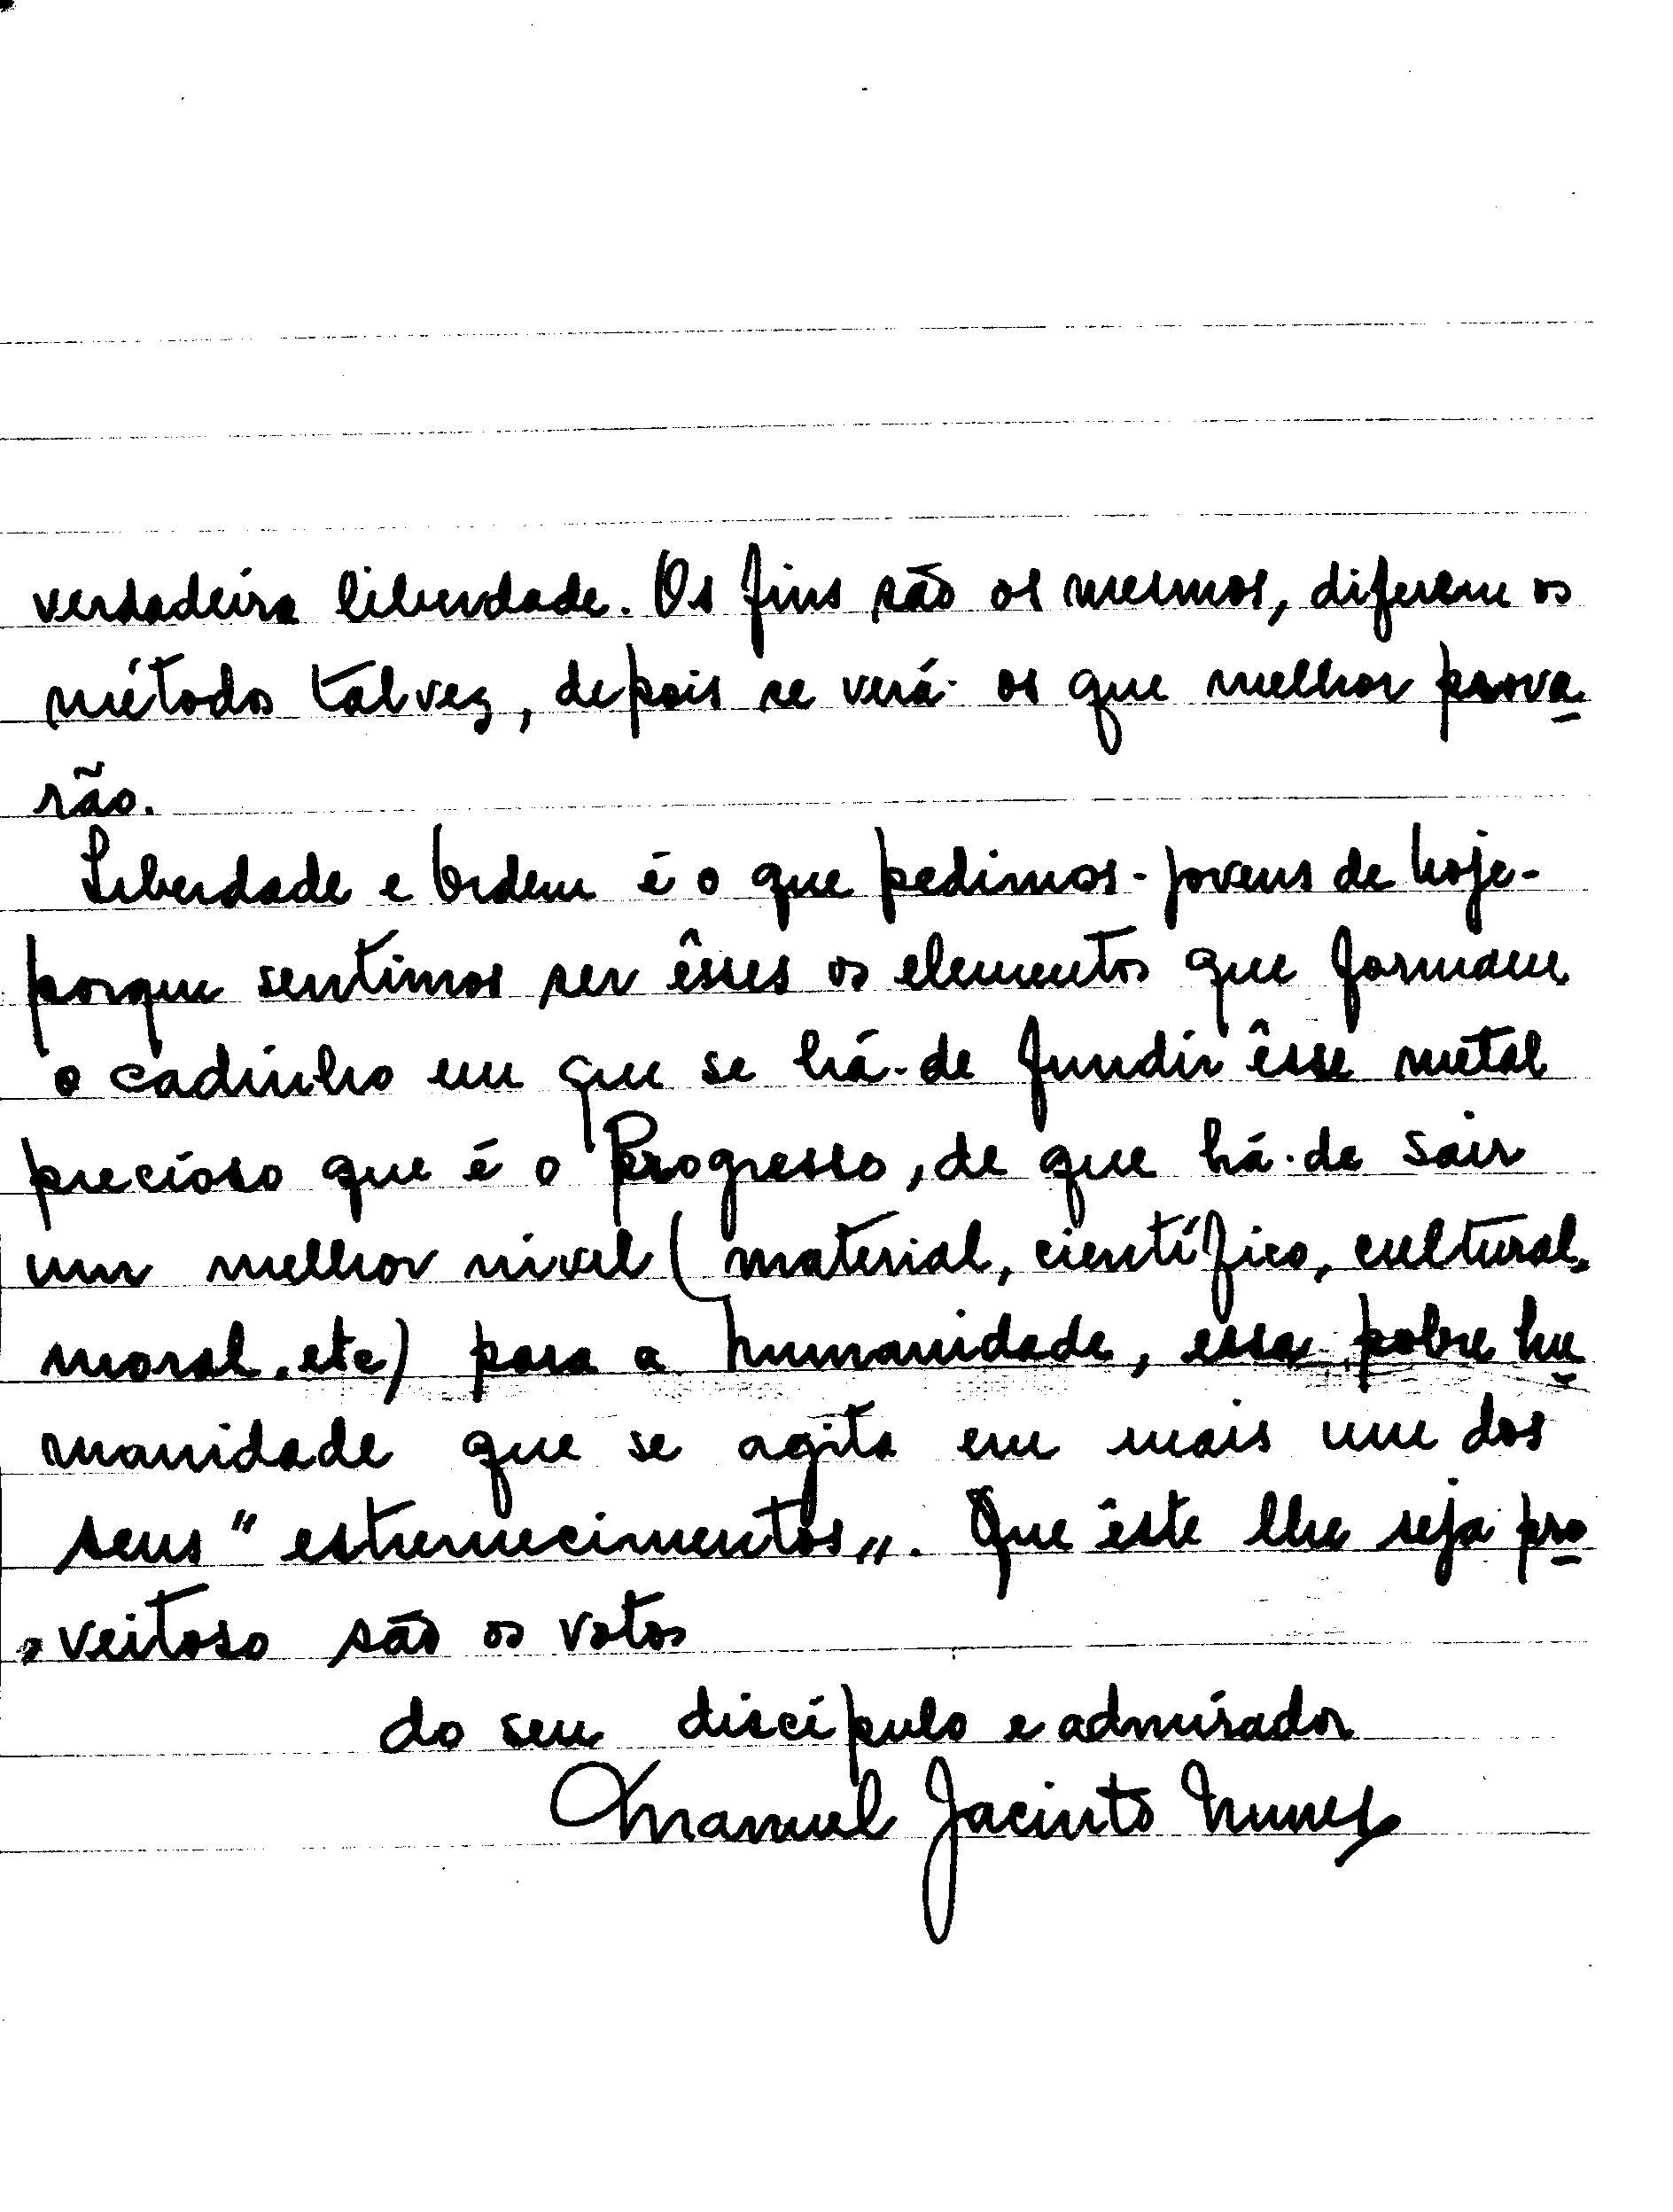 verdadeira liberdade. Os fins são os mesmos, diferem os
métodos talvez, depois se verá os que melhor prova-
rão.
Liberdade e Ordem é o que pedimos - jovens de hoje -
porque sentimos ser êsses os elementos que formam
o cadinho em que se há-de fundir êsse metal
precioso que é o Progresso, de que há-de sair
um melhor nivel (material, científico, cultural,
moral, etc) para a humanidade, essa pobre hu-
manidade que se agita em mais um dos
seus "estremecimentos". Que êste lhe seja pro-
veitoso são os votos
do seu discípulo e admirador
Manuel Jacinto Nunes